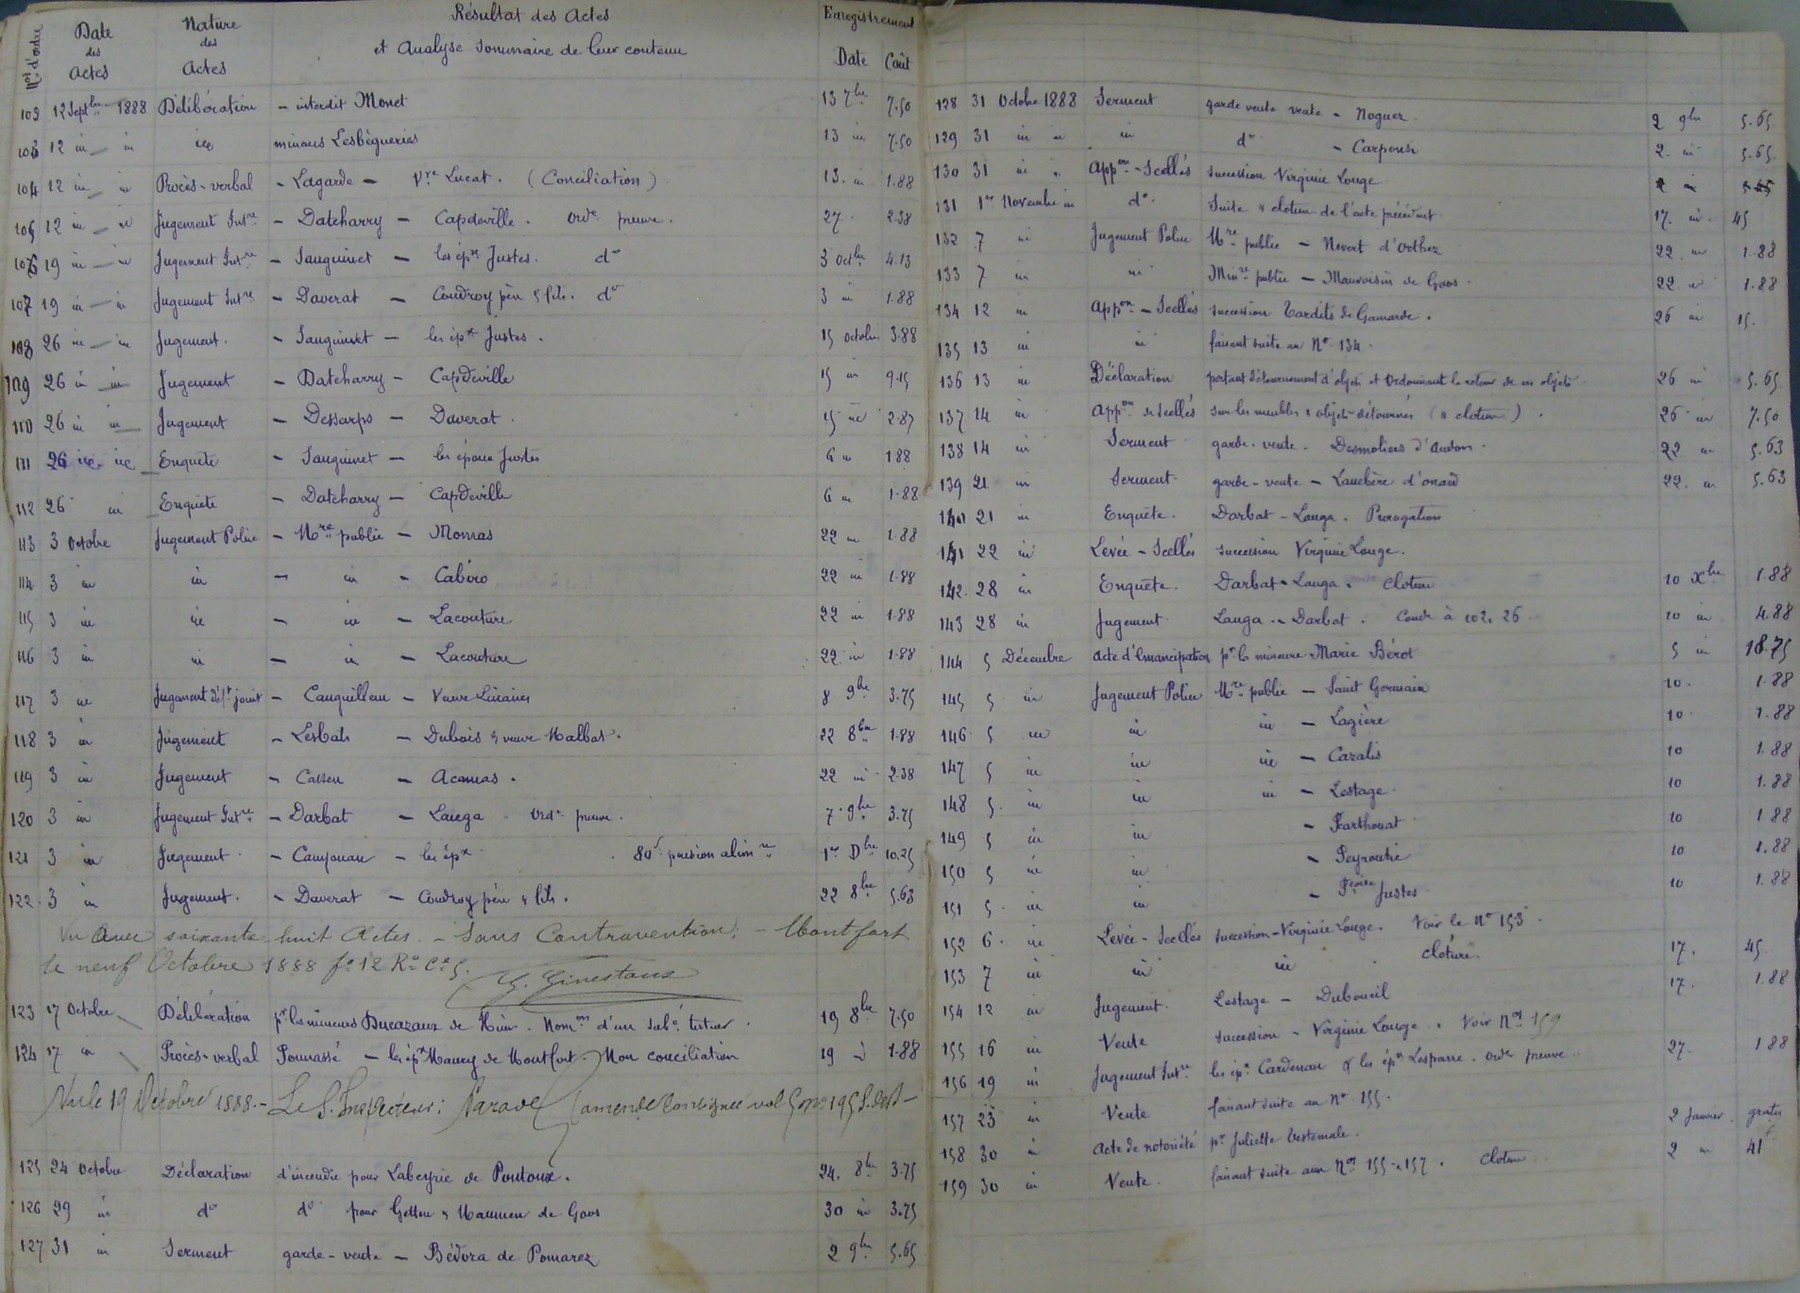 Nos d'ordre | Date des Actes | Nature des Actes | Résultat des Actes et Analyse Sommaire de leur contenu | Enregistrement Date | Coût
103 12 Septbre 1888 Délibération - interdit Monet 13 7bre 7.50
103 12 in in in mineurs Lesbègueries 13 in 7.50
104 12 in in Procès-verbal - Lagarde - Vve Lucat. (Conciliation) 13. in 1.88
105 12 in in Jugement Intre - Datcharry - Capdeville. Orde preuve. 27. 2.38
106 19 in in Jugement Intre - Sauguinet - les épx Justes. do 3 Octbre 4.13
107 19 in in Jugement Intre - Daverat - Coudroy père & fils. do 3 in 1.88
108 26 in in Jugement. - Sauguinet - les épx Justes. 15 octobre 3.88
109 26 in in Jugement - Datcharry - Capdeville 15 in 9.15
110 26 in in Jugement - Dessarps - Daverat. 15 in 2.87
111 26 in in Enquête - Sauguinet - les époux Justes 6 in 1.88
112 26 in Enquête - Datcharry - Capdeville 6 in 1.88
113 3 Octobre Jugement Police - Mre public - Momas 22 in 1.88
114 3 in in - in - Cabéro 22 in 1.88
115 3 in in - in - Lacouture 22 in 1.88
116 3 in in - in - Lacouture 22 in 1.88
117 3 in Jugement déft joint - Cauquillau - Veuve 8 9bre 3.75
118 3 in Jugement - Lesbats - Dubois & veuve Malbat. 22 8bre 1.88
119 3 in Jugement - Cassen - Acamas. 22 in 2.38
120 3 in Jugement Intre - Darbat - Lauga. Orde preuve. 7 9bre 3.75
121 3 in Jugement. - Campouau - les épx. 80f pension alimre 1er Dbre 10.25
122 3 in Jugement. - Daverat - Coudroy père & fils. 22 8bre 5.63
Vu Avec soixante huit Actes. - Sans Contravention. - Montfort
le neuf Octobre 1888 fo 12 Ro Ce 5. G. Ginestoux
123 17 Octobre Délibération pr les mineurs Ducazaux de Hinx. Nomon d'un sub. tuteur. 19 8bre 7.50
124 17 in Procès-verbal Pomassé - les épx Maury de Montfort. Non conciliation 19 do 1.88
Vu le 19 Octobre 1888. - Le S. Inspecteur: (amende consignée vol 5 no 195
125 24 Octobre Déclaration d'incendie pour Labeyrie de Poudoux. 24. 8bre 3.75
126 29 in do do pour & Maumen de Goos 30 in 3.75
127 31 in Serment garde-vente - Bédora de Pomarez 2 9bre 5.65
128 31 Octobre 1888 Serment garde vente vente - Noguez. 2 9bre 5.65
129 31 in in in do - 2. in 5.65
130 31 in Appon - Scellés succession Virginie Louge
131 1er Novembre in do. Suite & clôture de l'acte précédent 17. in. 45
132 7 in Jugement Police Mre public - Nevert d'Orthez 22 in 1.88
133 7 in in Minre public - Mauvoisin de Goos. 22 in 1.88
134 12 in Appon - Scellés succession Tardits de Gamarde. 26 in 15.
135 13 in in faisant suite au No 134.
136 13 in Déclaration portant détournement d'objets et Ordonnant le retour de ces objets 26 in 5.65
137 14 in Appon de Scellés sur les meubles & objets détournés (& clôture). 26 in 7.50
138 14 in Serment garde-vente. Desmoliers d' 22 in 5.63
139 21 in Serment. garde-vente - d'onard 22. in 5.63
140 21 in Enquête. Darbat - Lauga. Prorogation
141 22 in Levée - Scellés succession Virginie Louge.
142. 28 in Enquête. Darbat - Lauga. clôture 10 Xbre 1.88
143 28 in Jugement. Lauga - Darbat. Condé à 102.26 10 in 4.88
144 5 Décembre Acte d'émancipation pr la mineure Marie Bérot 5 in 18.75
145 5 in Jugement Police Mre public - Saint Germain 10. 1.88
146 5 in in in - Lagière 10 1.88
147 5 in in in - Cazalis 10 1.88
148 5. in in in - Lestage 10 1.88
149 5 in in - Farthouat 10 1.88
150 5 in in - Peyroutié 10 1.88
151 5. in in - Justes 10 1.88
152 6. in Levée - Scellés succession - Virginie Louge. Voir le No 153.
153 7 in in in clôture. 17. 45.
154 12 in Jugement. Lestage - Duboueil 17. 1.88
155 16 in Vente succession - Virginie Louge. Voir Nos 159
156 19 in Jugement Intre les épx Cardenau & les épx Lesparre. Orde preuve. 27. 1.88
157 23 in Vente faisant suite au No 155.
158 30 in Acte de notoriété pr Juliette 2 Janvier. gratis
159 30 in Vente. faisant suite aux Nos 155 & 157. Clôture 2 in 41f